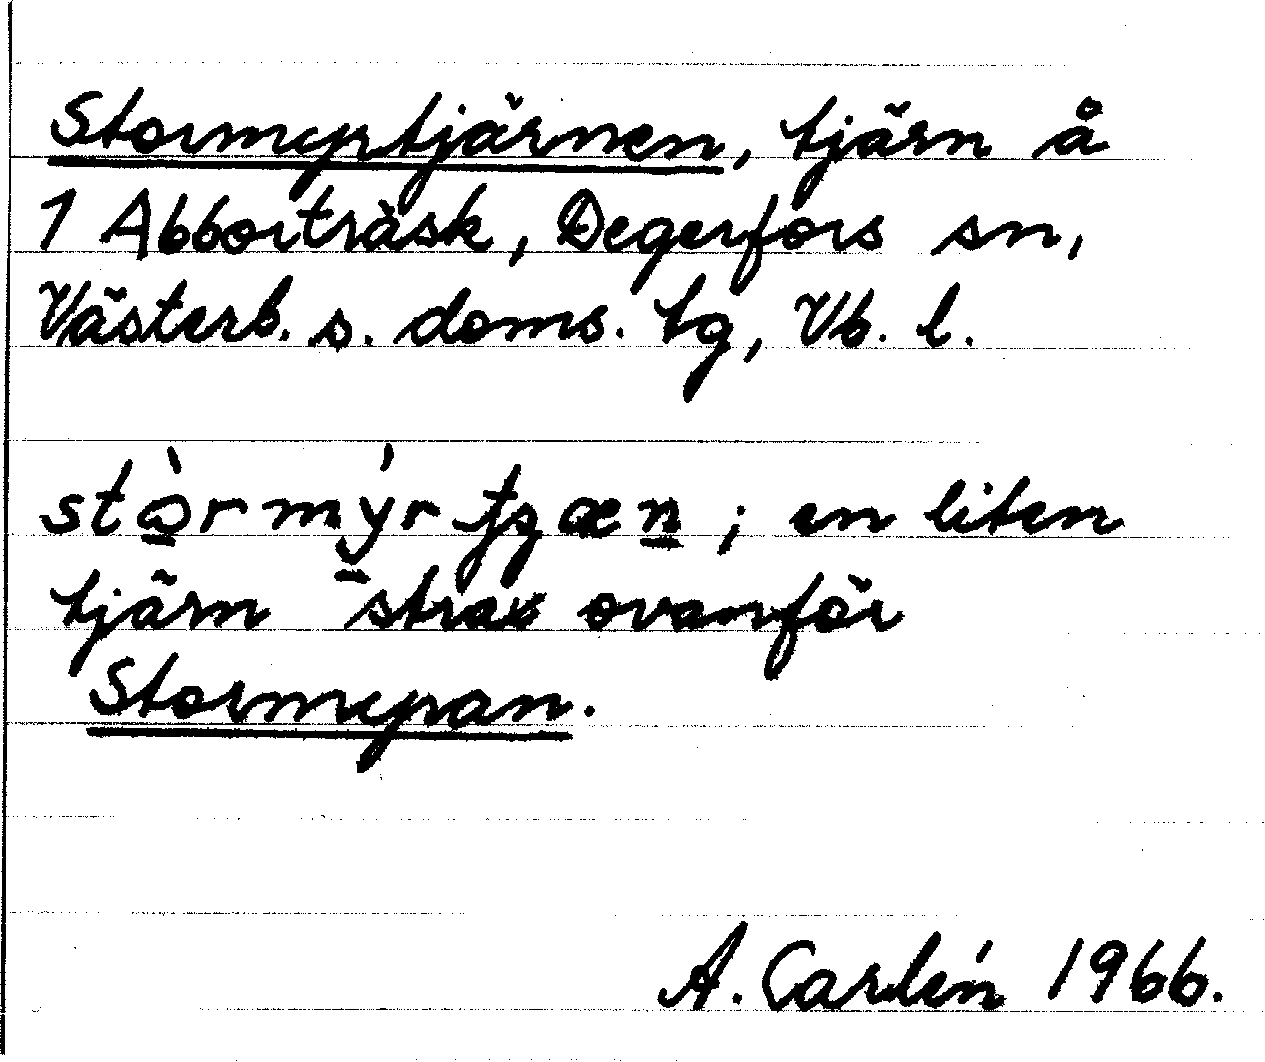 Stormyrtjärnen, tjärn å
1 Abborträsk, Degerfors sn,
Västerb. s. doms. tg, Vb. l.
en liten
tjärn strax ovanför
Stormyran.
A. Carlén 1966.